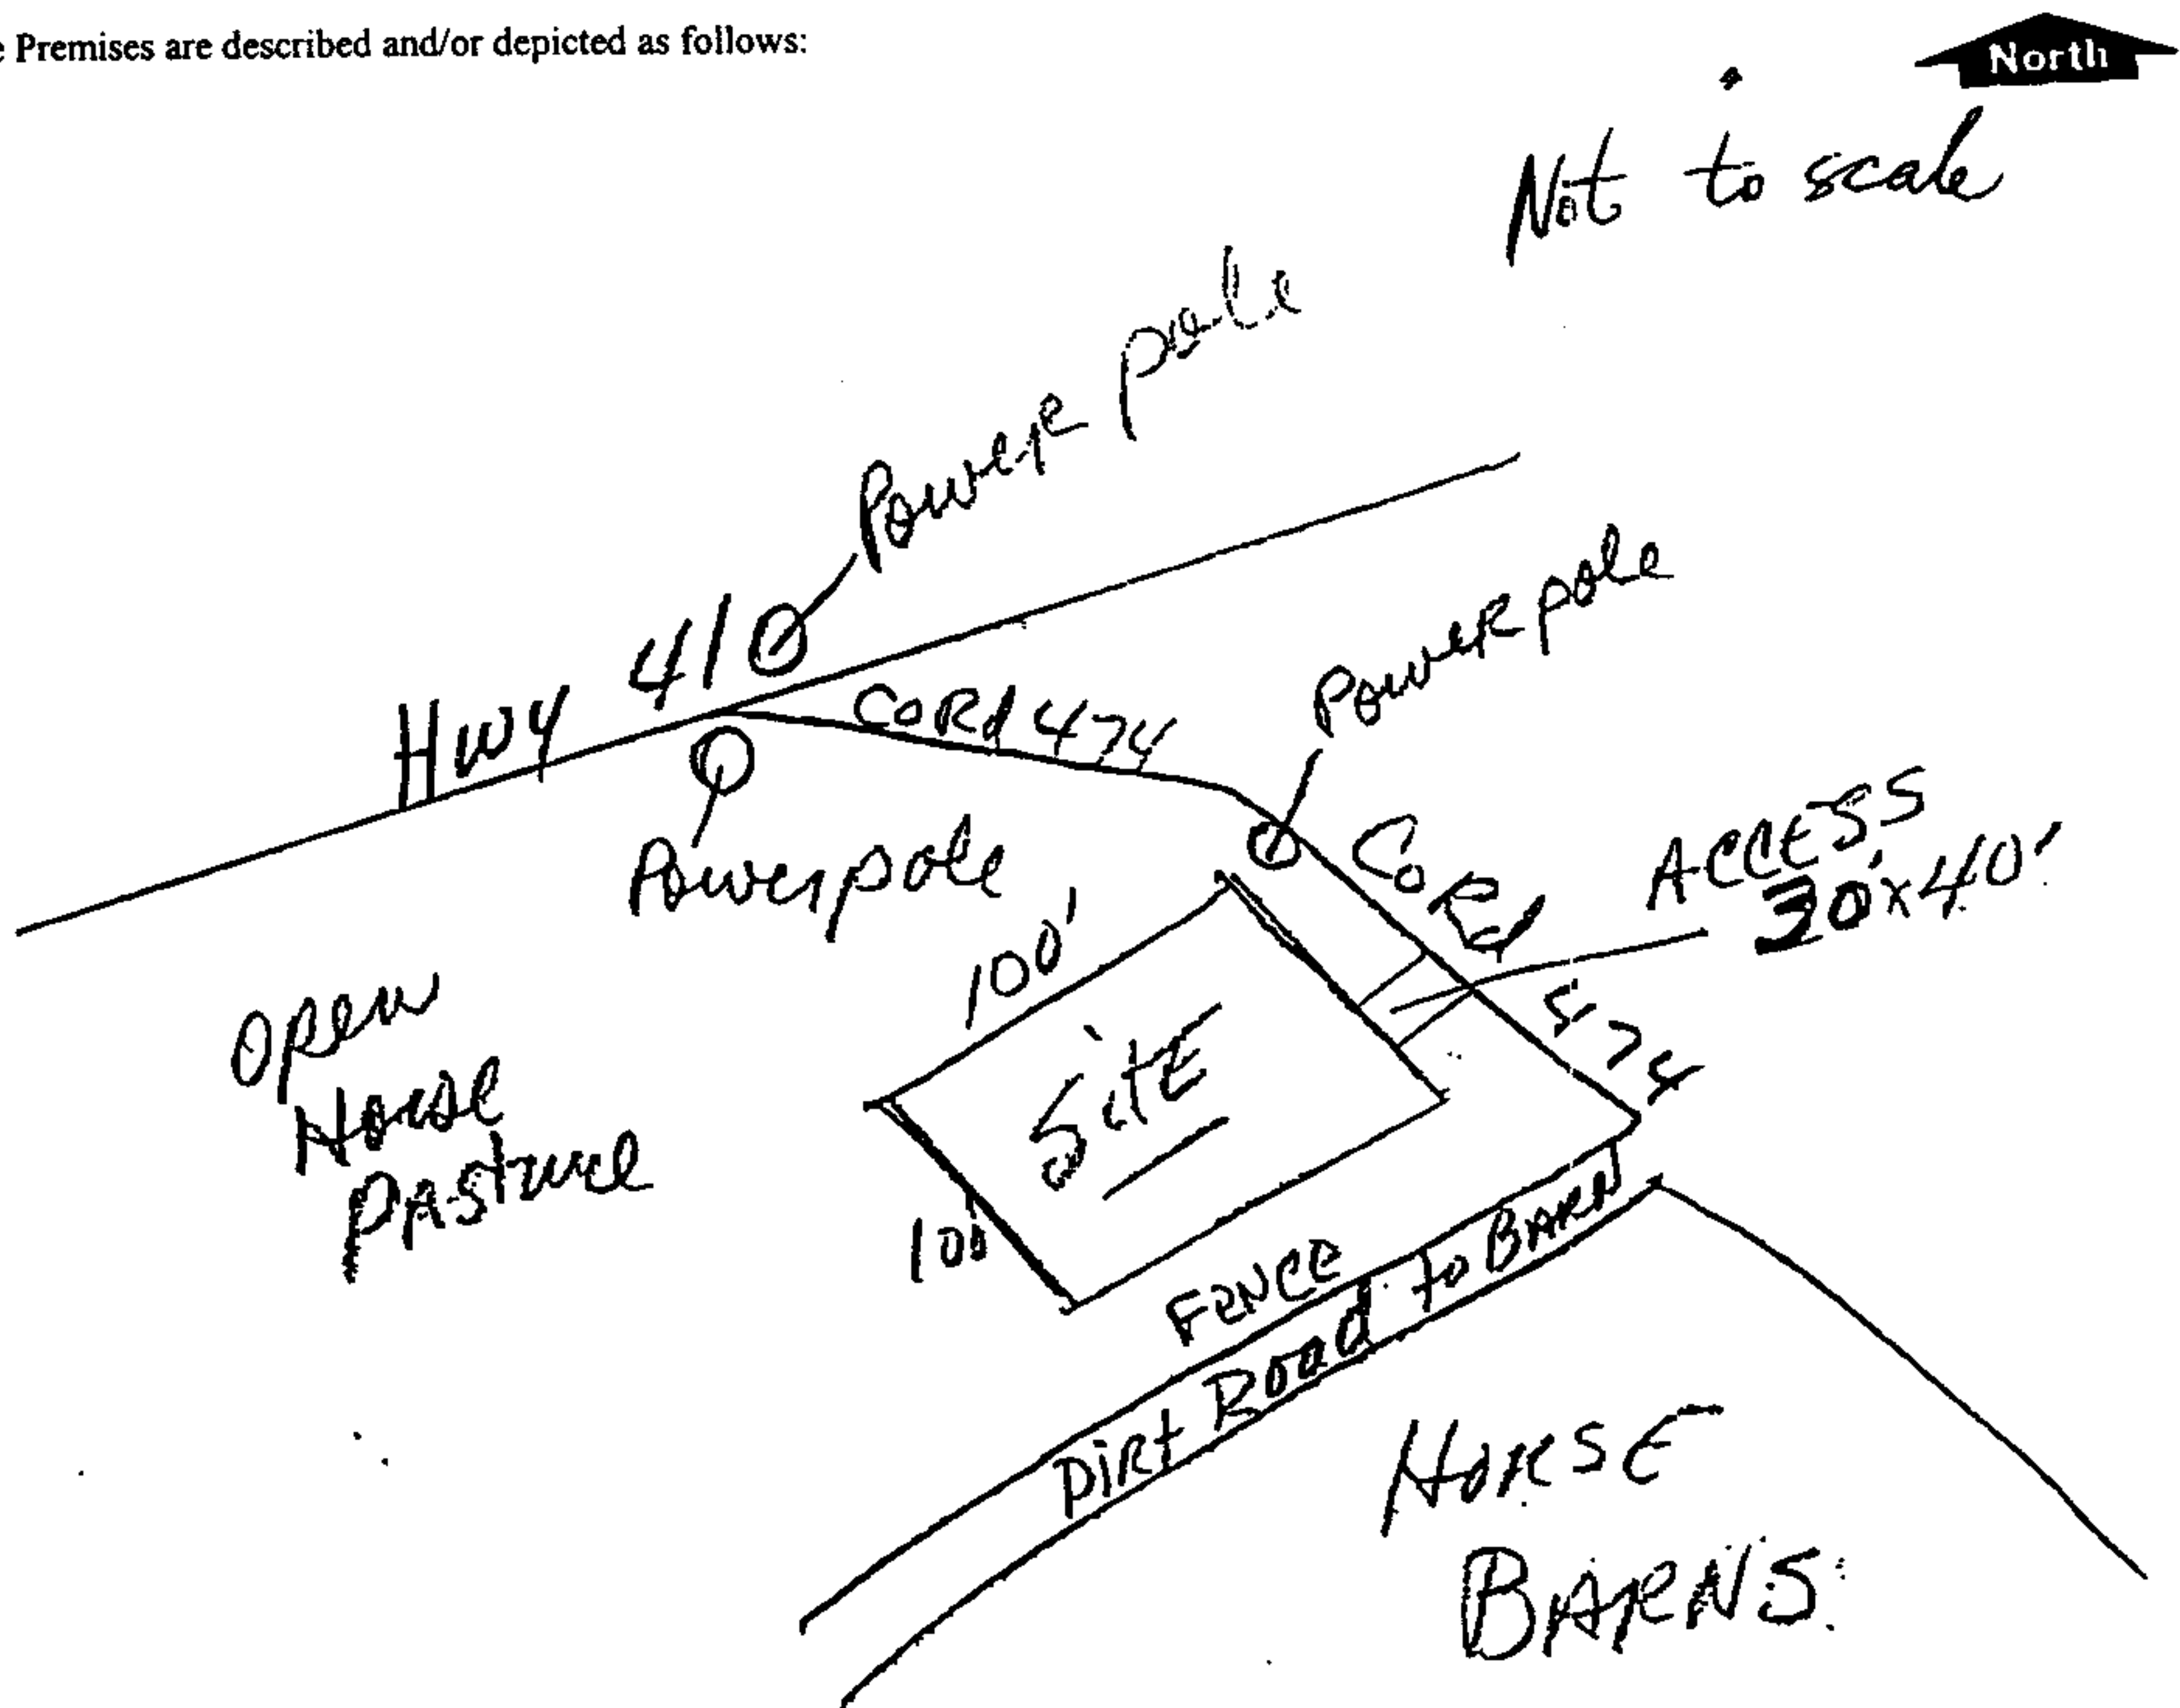 e Premises are described and/or depicted as follows:
North
Not to scale
Power pole
Hwy 41
Co Rd 474
Power pole
Power pole
Co Rd 474
ACCESS
30'x40'
100'
Site
100'
Open
Horse
Pasture
Fence
Dirt Road to Barn
HORSE
BARNS